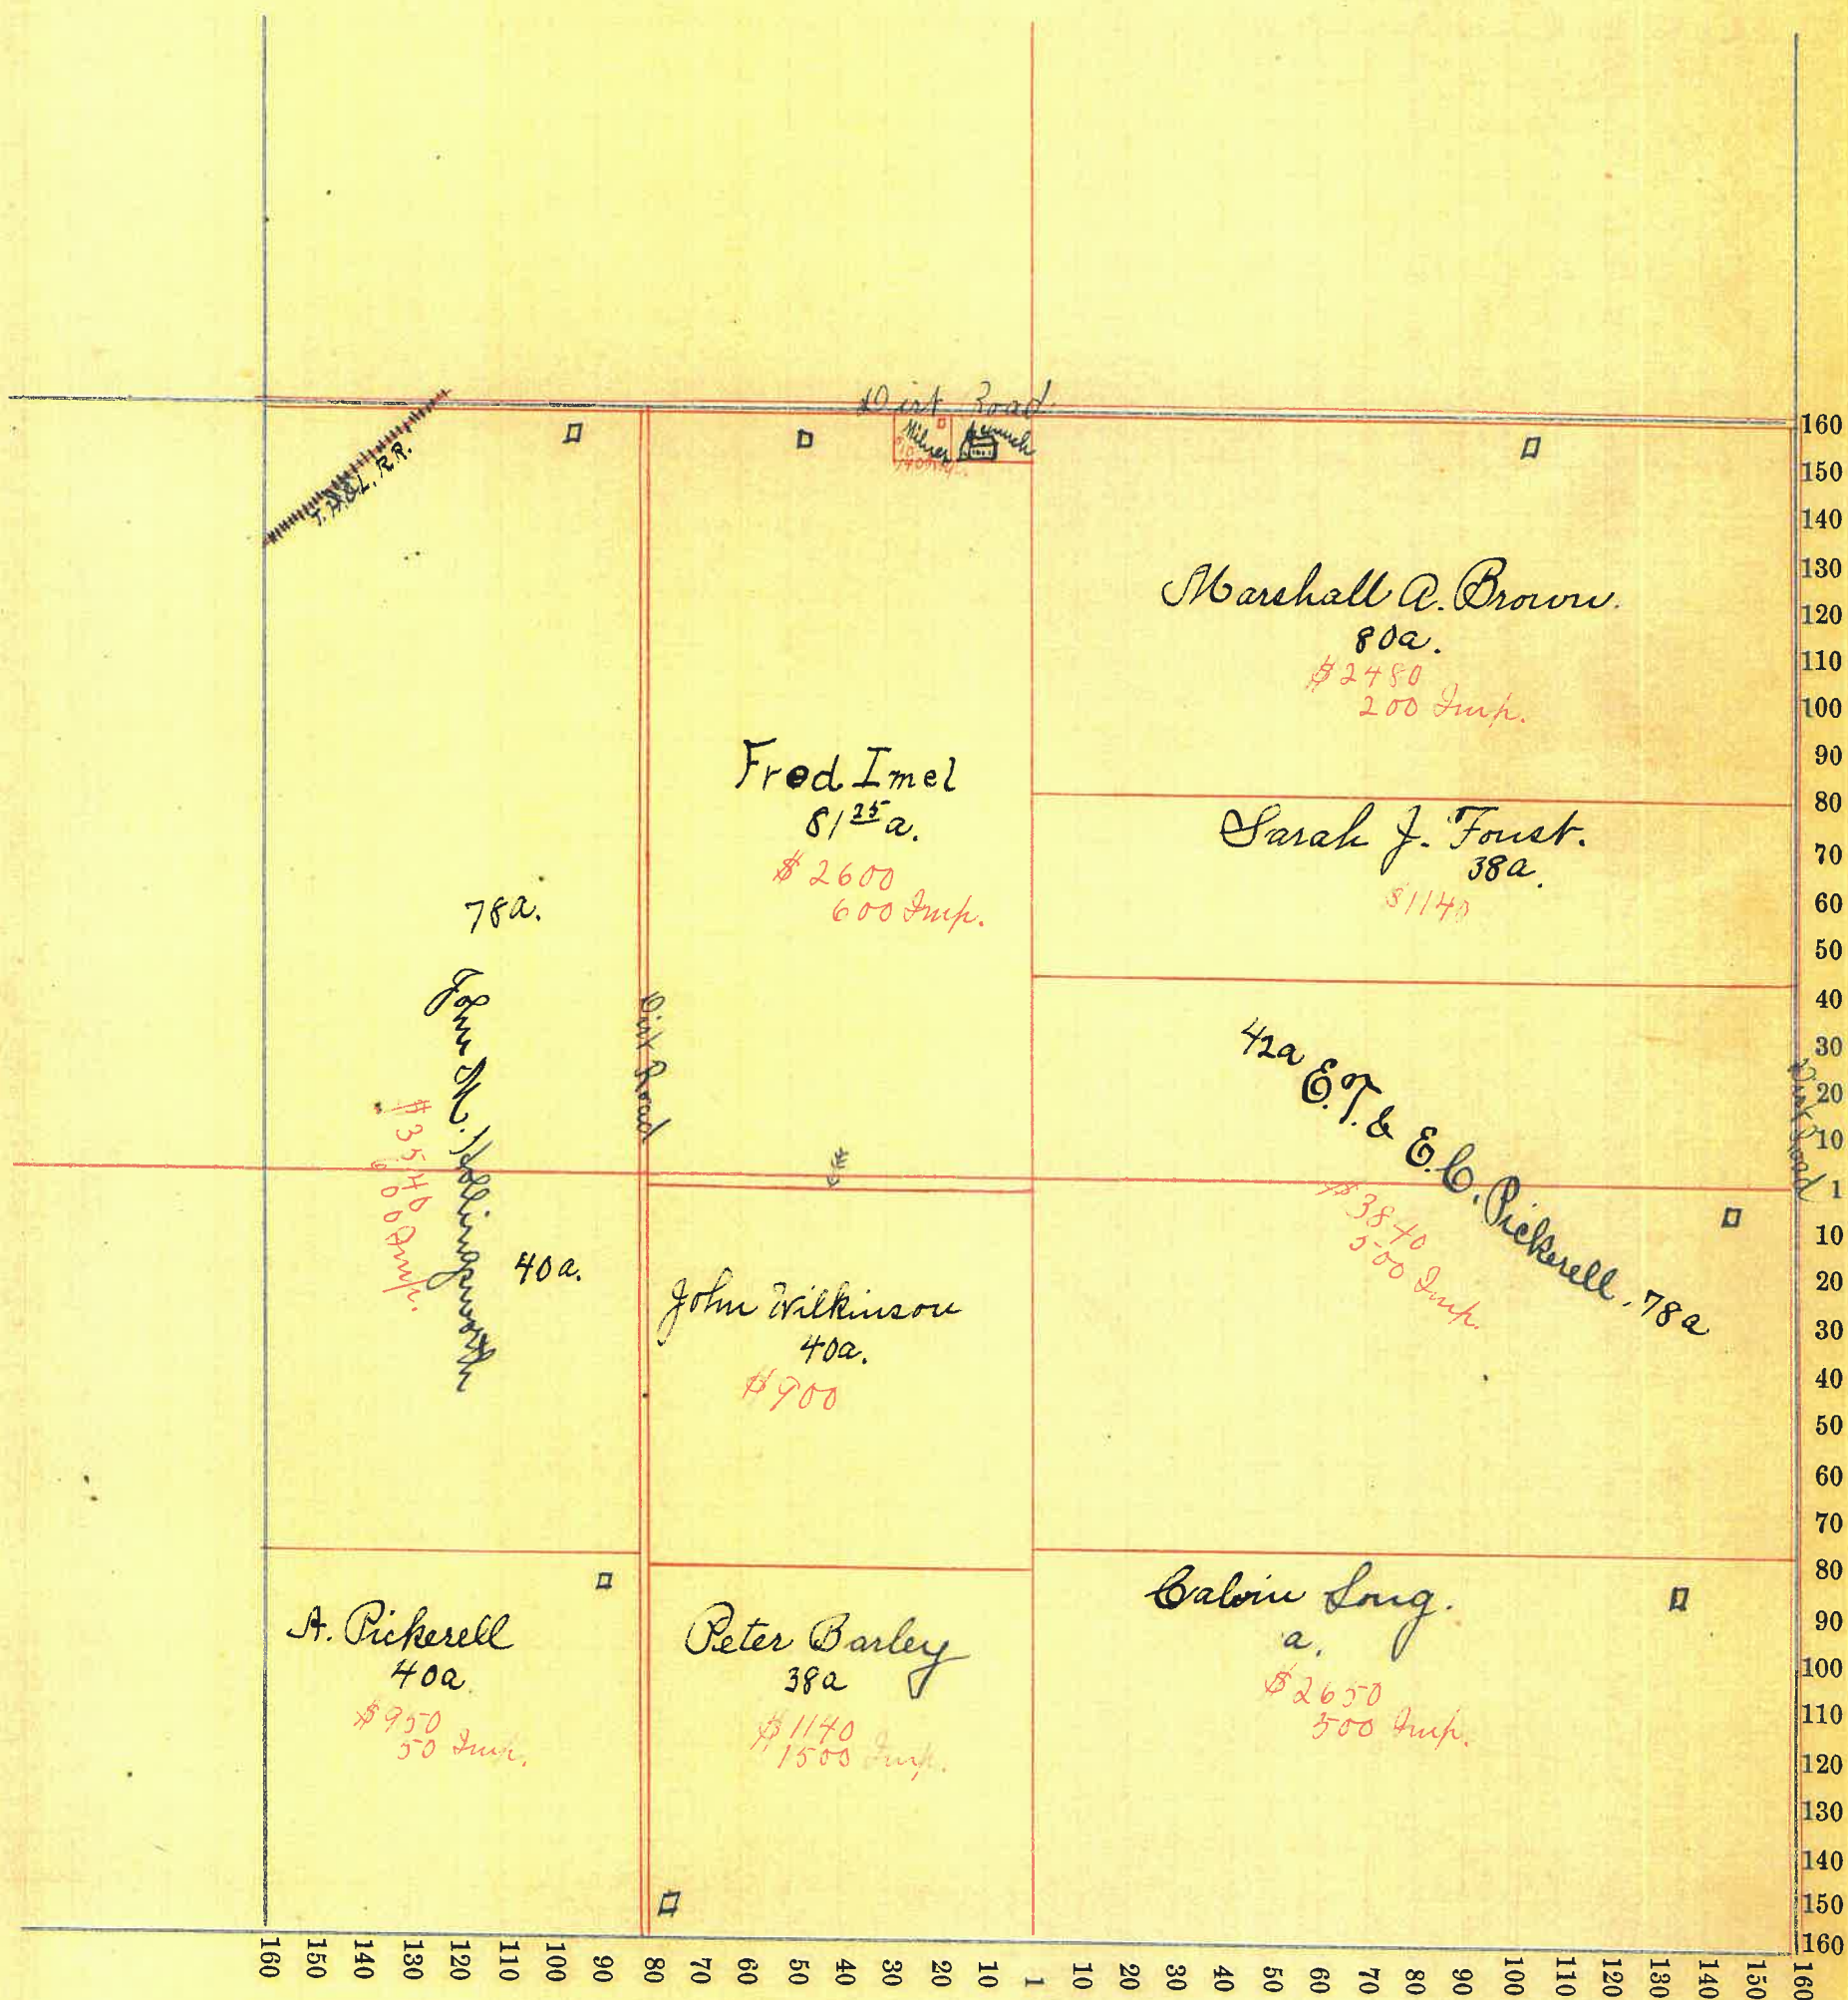 Dirt Road
Milner
Church
T. H. & L. R.R.
Marshall A. Brown.
80a.
$2480
200 Imp.
Fred Imel
81 25 a.
$2600
600 Imp.
Sarah J. Foust.
38a.
$1140
78a.
John M. Hollingsworth
$3540
600 Imp.
40a.
Dirt Road
42a E.T. & E.C. Pickerell. 78a
$3840
500 Imp.
Dirt Road
John Wilkinson
40a.
$900
A. Pickerell
40a
$950
50 Imp.
Peter Barley
38a
$1140
1500 Imp.
Calvin Long.
a.
$2650
500 Imp.
160
150
140
130
120
110
100
90
80
70
60
50
40
30
20
10
1
10
20
30
40
50
60
70
80
90
100
110
120
130
140
150
160
160 150 140 130 120 110 100 90 80 70 60 50 40 30 20 10 1 10 20 30 40 50 60 70 80 90 100 110 120 130 140 150 160